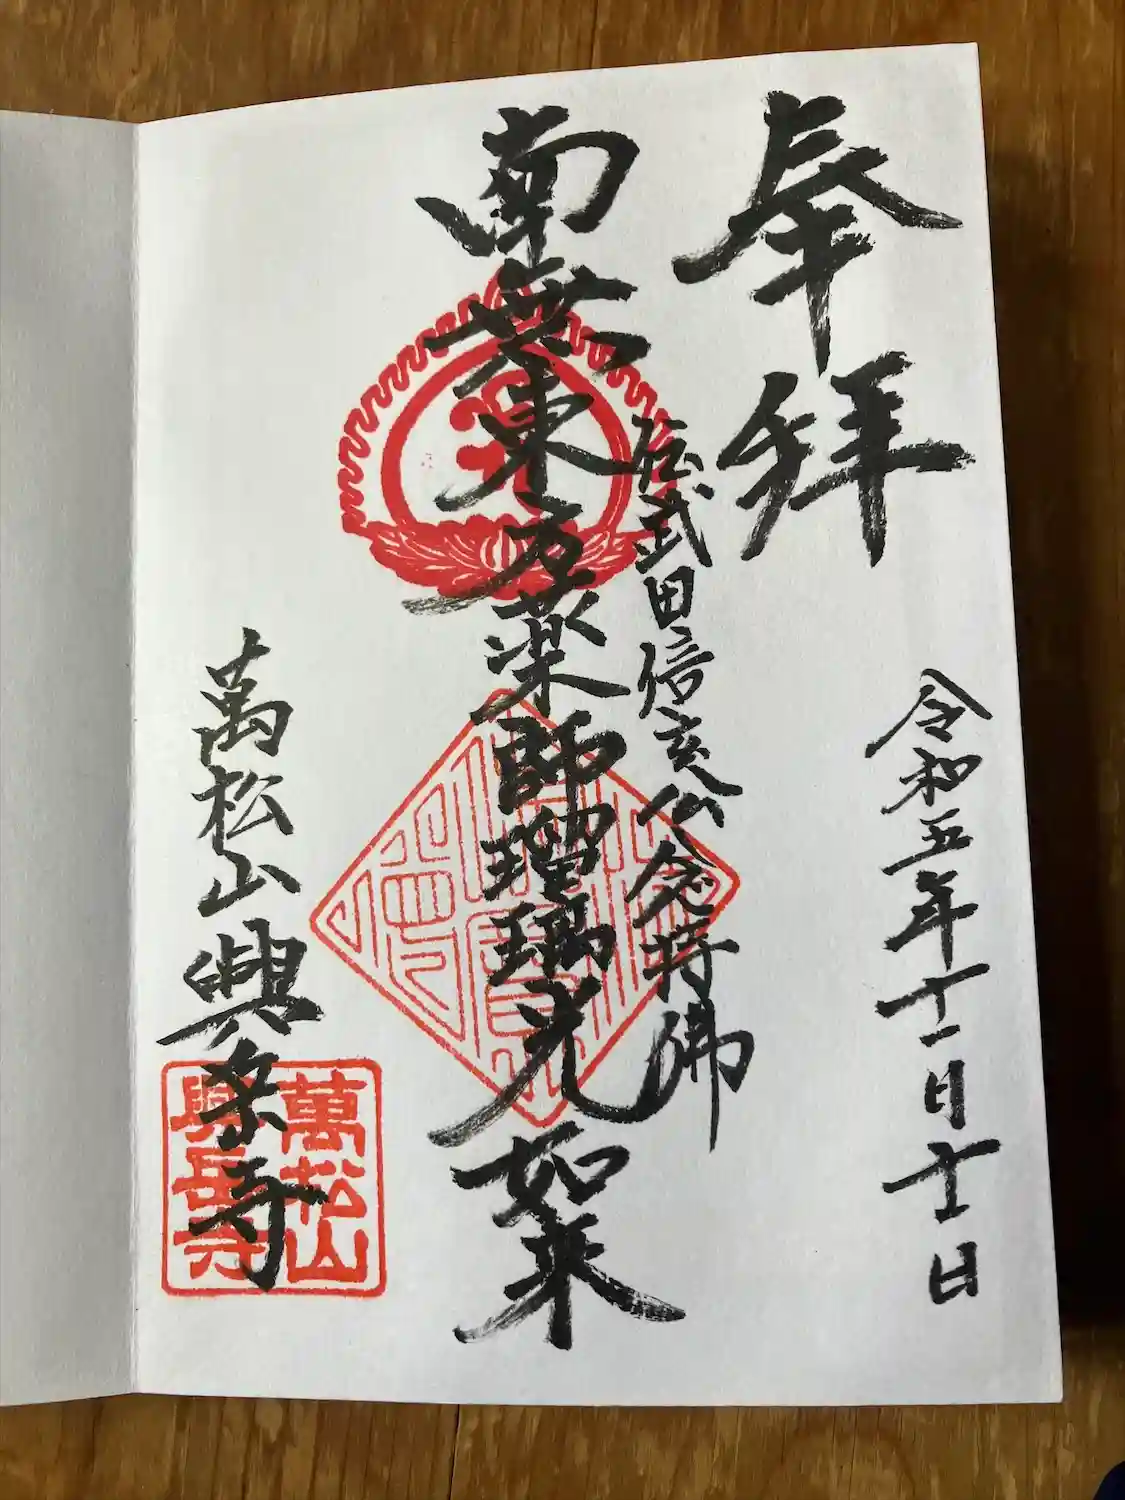 奉拝
令和五年十一月十一日
伝武田信玄公念持佛
南無東方薬師瑠璃光如来
萬松山興岳寺
萬松山
興岳寺